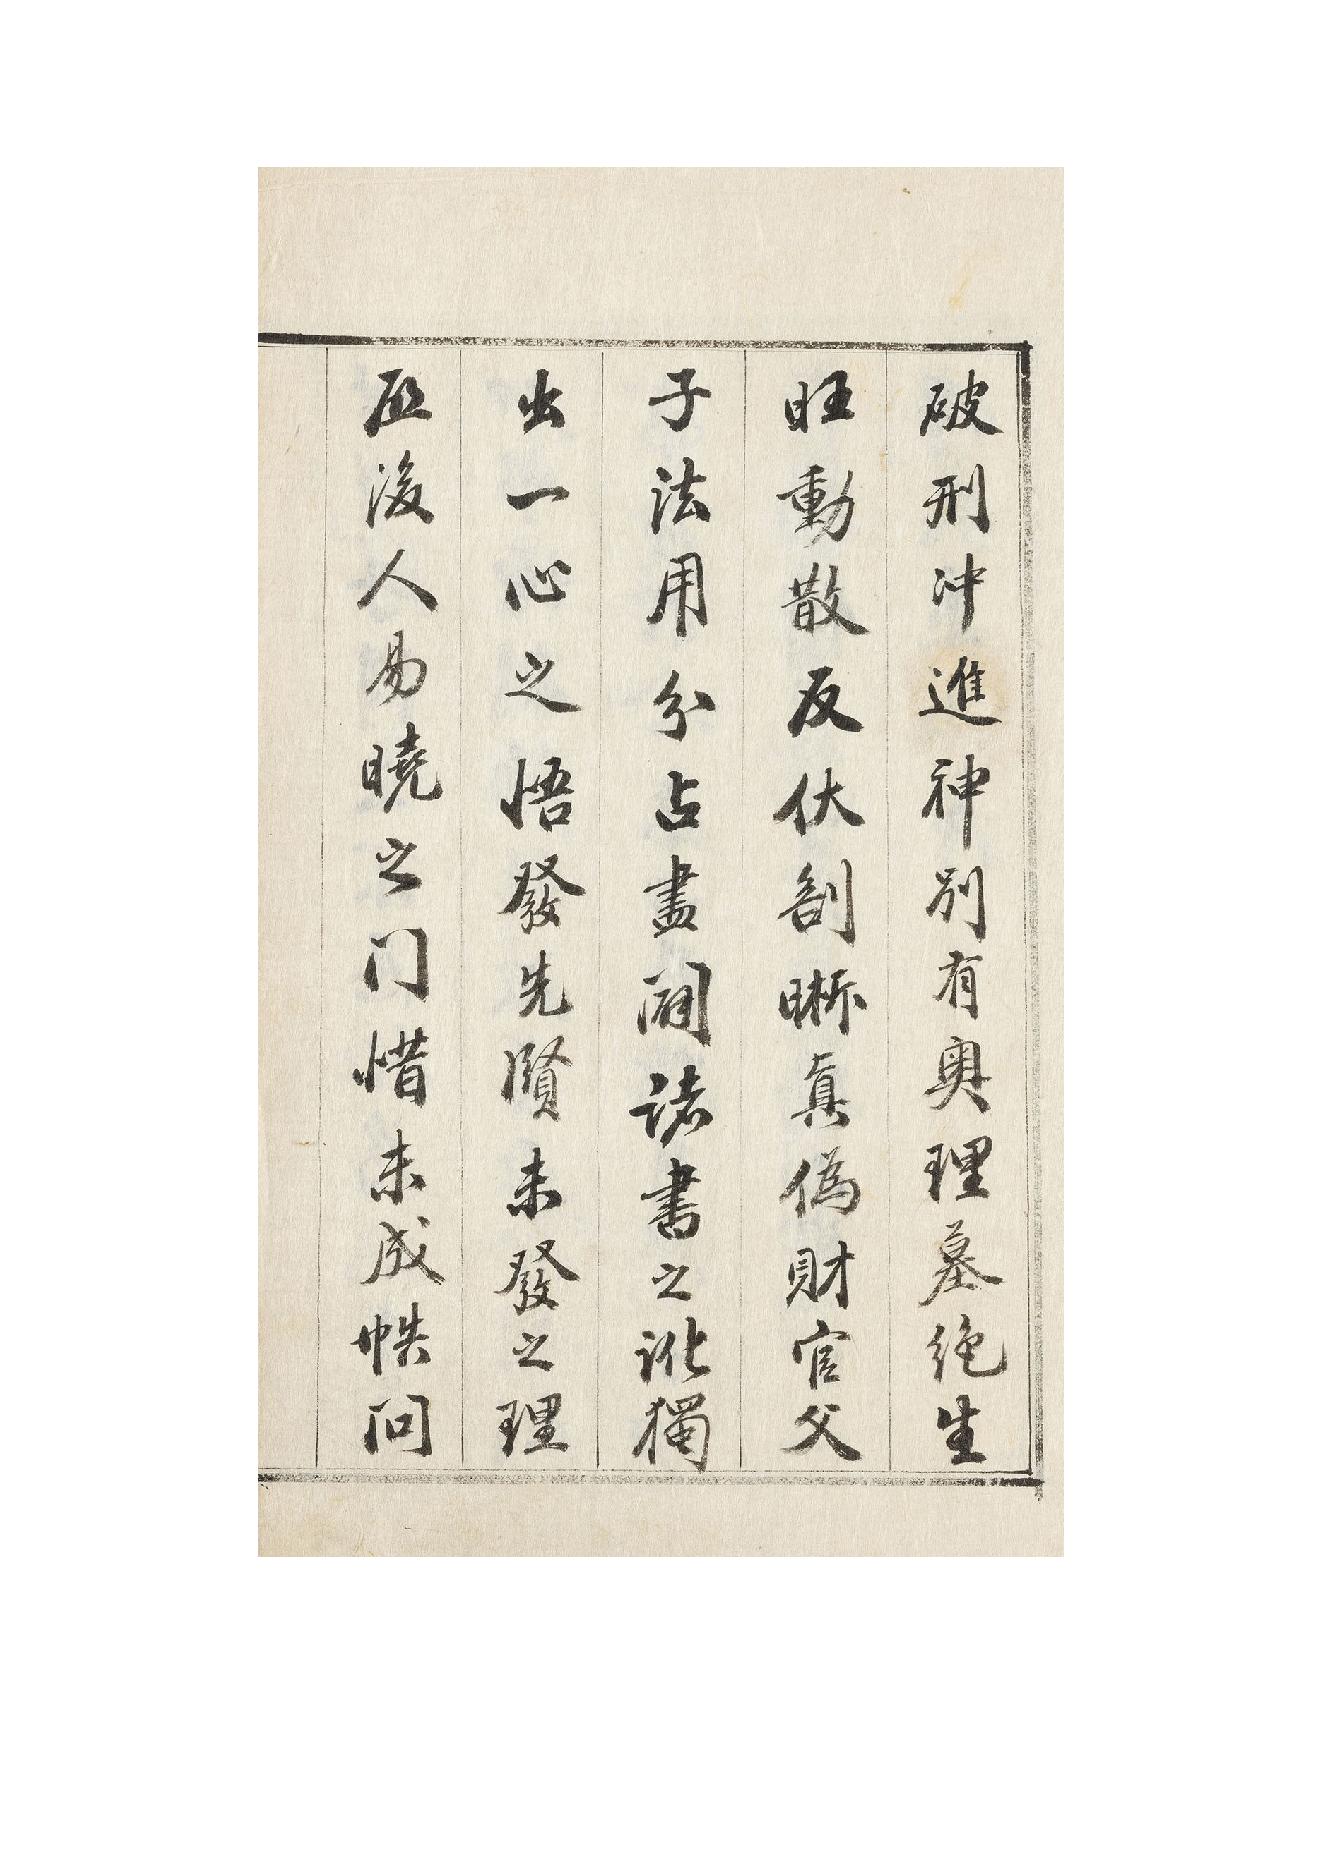 破刑冲進神別有奧理墓絶生
旺動散反伏剖晰真偽財官父
子法用分占盡闢諸書之訛獨
出一心之悟發先賢未發之理
啟後人易曉之门惜未成帙问